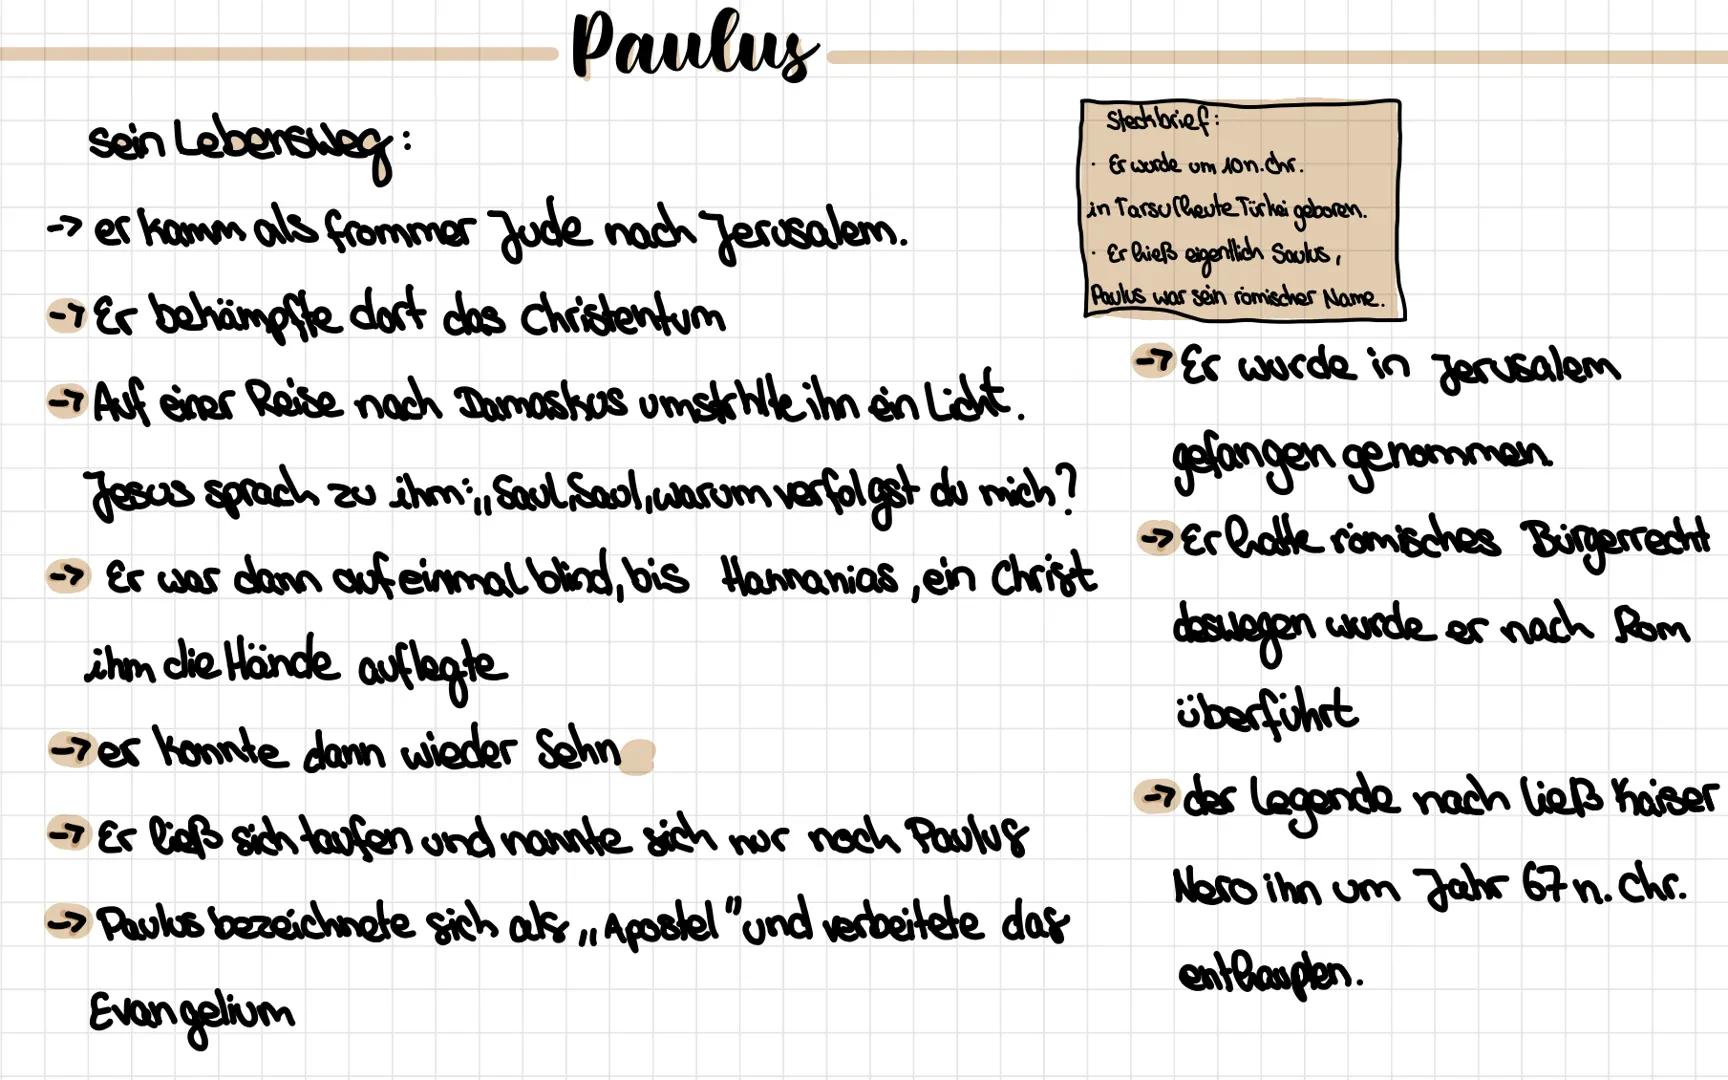 Paulus
sein Lebensweg:
-> er kamm als frommer Jude nach Jerusalem.
-> Er bekämpfte dort das Christentum
-> Auf einer Reise nach Damaskus umstrhlte ihn ein Licht.
Jesus sprach zu ihm:„Saul,Saul,warum verfolgst du mich?
-> Er war dann auf einmal blind, bis Hannanias, ein Christ
ihm die Hände auflegte
-> er konnte dann wieder Sehn
-> Er ließ sich taufen und nannte sich nur noch Paulus
-> Paulus bezeichnete sich als „Apostel" und verbeitete das
Evangelium
Steckbrief:
· Er wurde um 10 n. Chr.
in Tarsu (heute Türkei geboren.
· Er hieß eigentlich Saulus,
Paulus war sein römischer Name.
-> Er wurde in Jerusalem
gefangen genommen.
-> Er hatte römisches Bürgerrecht
deswegen wurde er nach Rom
überführt
-> der Legende nach ließ Kaiser
Nero ihn um Jahr 67 n. Chr.
enthaupten.